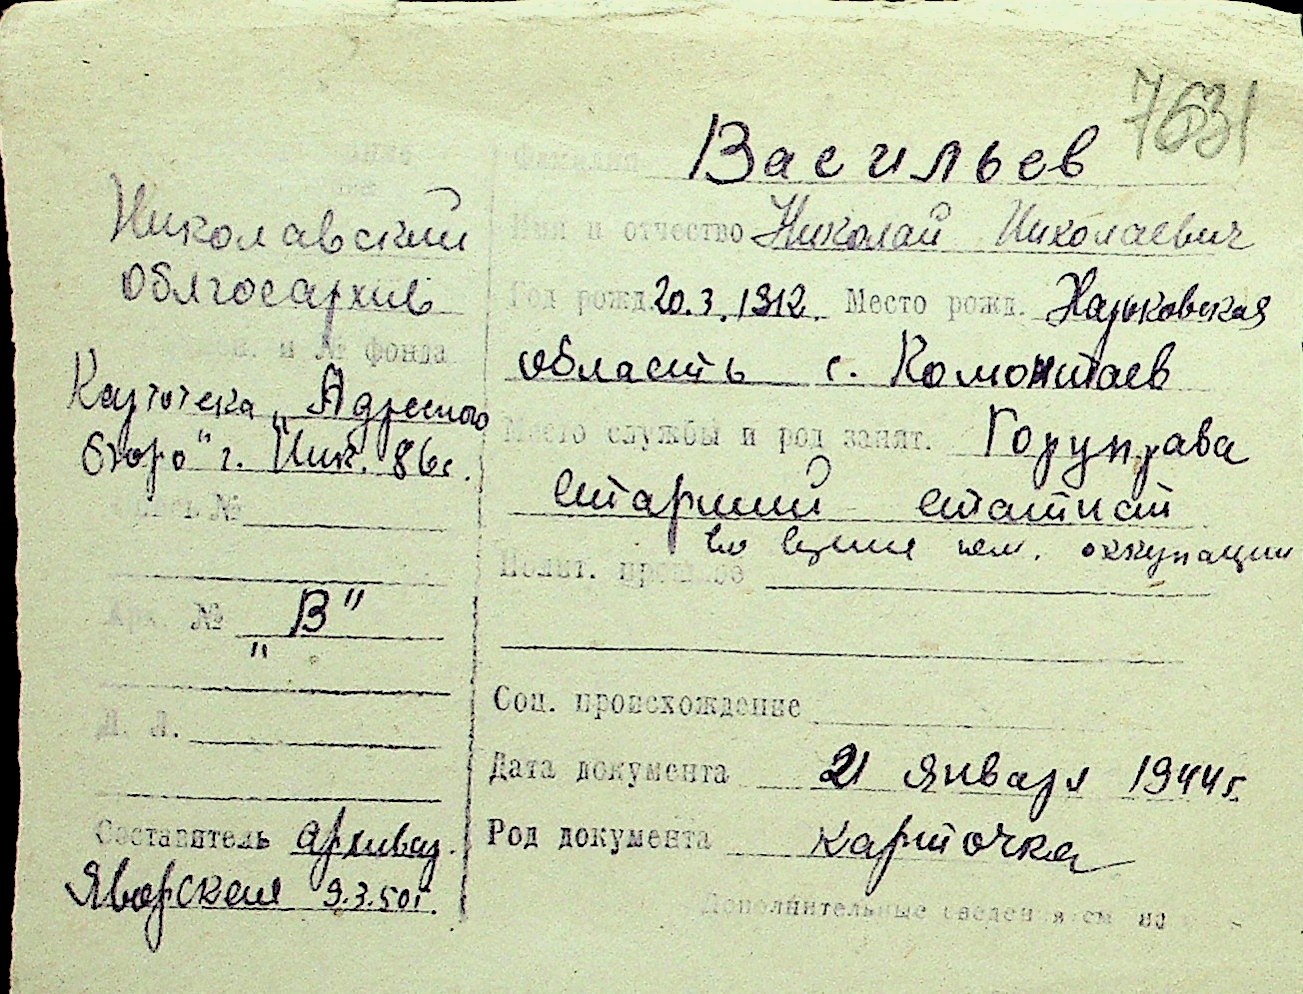 7631
Фамилия Васильев
Николавский
Имя и отчество Николай Николаевич
Облгосархив
Год рожд. 20.3.1912. Место рожд. Харьковская
и № фонда
область с. Комонтаев
Картотека „Адресного
Место службы и род занят. Горуправа
бюро" г. Ник. 86с.
старший статист
№
во время нем. оккупации
Полит. прошлое
Арх. № „В"
Соц. происхождение
Д. Л.
Дата документа 21 января 1944 г.
Составитель архивар.
Род документа карточка
Яворская 9.3.50г.
Дополнительные сведения см на